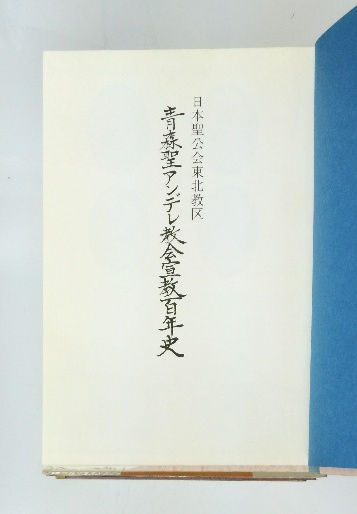 日本聖公会東北教区
青森聖アンデレ教会宣教百年史